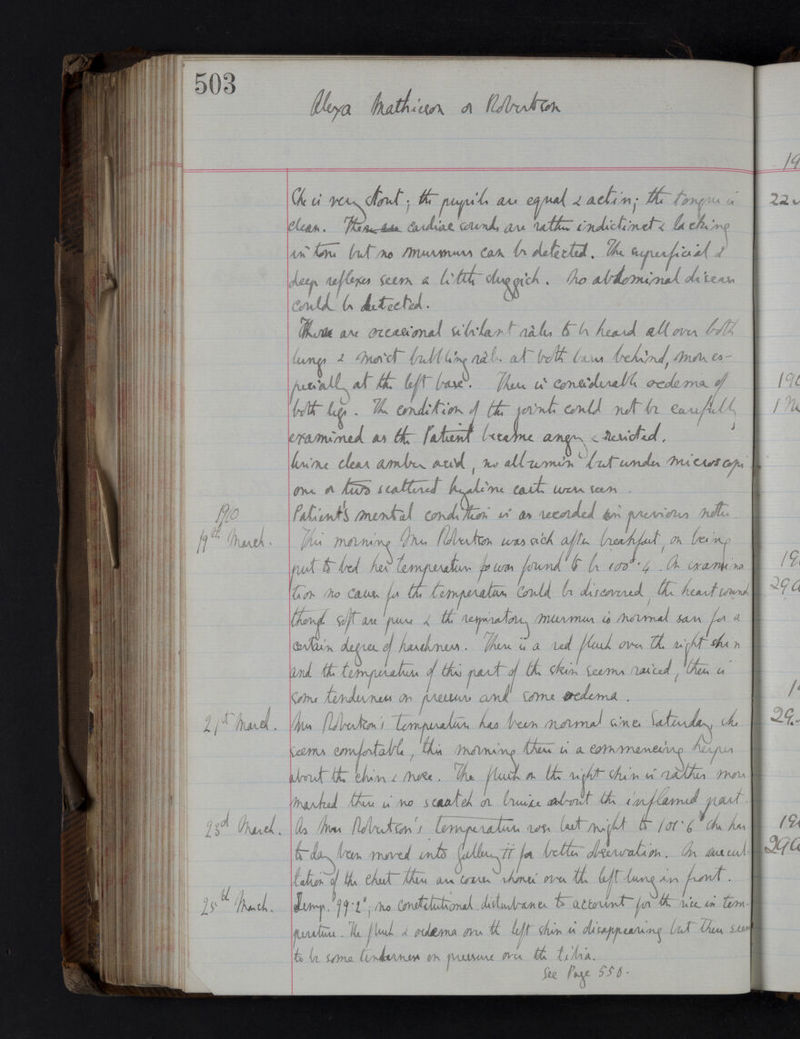 503
Alexa Mathieson or Robertson
19
She is very stout; the pupils are equal & acting; the tongue is
22
clean. cardiac sounds are rather indistinct & lacking
in tone but no murmurs can be detected. The superficial &
deep reflexes seem a little sluggish. No abdominal disease
could be detected.
There are occasional sibilant râles to be heard all over both
lungs & moist bubbling râles at both bases behind, more es-
pecially at the left base. There is considerable oedema of
190
both legs. The condition of the joints could not be carefully
examined as the Patient became angry & resisted.
Urine clear amber acid, no albumin but under microscope
one or two scattered hyaline casts were seen.
1910
Patient's mental condition is as recorded in previous notes
19th March.
This morning Mrs Robertson was sick after breakfast, on being
put to bed her temperature was found to be 100°.4. On examina
19
tion no cause for the temperature could be discovered, the heart sounds
29
though soft are pure & the respiratory murmur is normal save for a
certain degree of harshness. There is a red flush over the right shin
and the temperature of this part of the skin seems raised, there is
some tenderness on pressure and some oedema.
21st March.
Mrs Robertson's temperature has been normal since Saturday, she
29
seems comfortable, this morning there is a commencing herpes
about the chin & nose. The flush on the right shin is rather more
marked there is no scratch or bruise about the inflamed part.
23d March.
As Mrs Robertson's temperature rose last night to 101°.6 she has
19
to day been moved into Gallery II for better observation. On auscul
29
tation of the chest there are coarse rhonci over the left lung in front.
25th March.
Temp. 99.2°, no constitutional disturbance to account for the rise in tem-
perature. The flush & oedema over the left shin is disappearing but there seems
to be some tenderness on pressure over the tibia.
See Page 550.